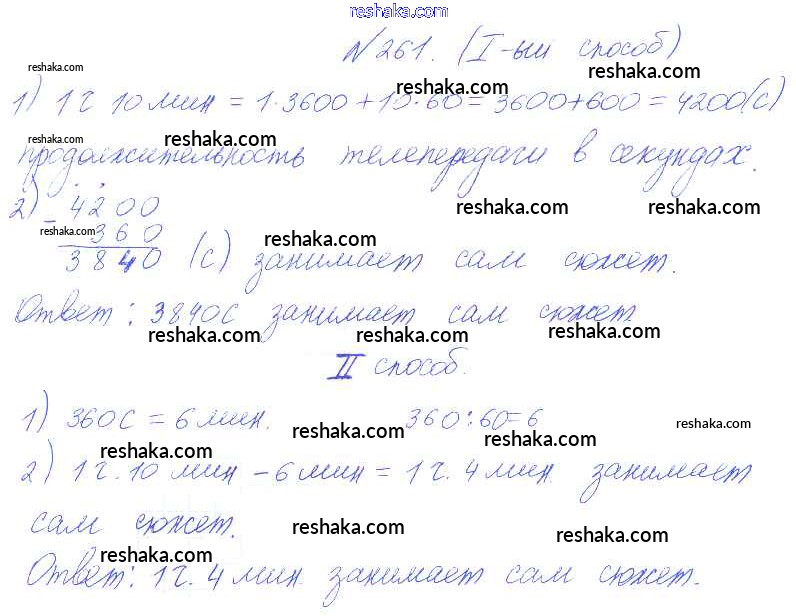 reshaka.com
№261. (I-ый способ)
reshaka.com
reshaka.com
reshaka.com
1) 1 ч 10 мин = 1·3600+10·60=3600+600=4200(с)
reshaka.com
reshaka.com
reshaka.com
продолжительность телепередачи в секундах.
2) - 4200
reshaka.com
reshaka.com
reshaka.com
360
reshaka.com
3840 (с) занимает сам сюжет.
Ответ: 3840с занимает сам сюжет
reshaka.com
reshaka.com
reshaka.com
II способ.
1) 360с = 6 мин. 360:60=6
reshaka.com
reshaka.com
reshaka.com
reshaka.com
2) 1 ч. 10 мин - 6 мин = 1 ч. 4 мин занимает
сам сюжет.
reshaka.com
reshaka.com
reshaka.com
Ответ: 1 ч. 4 мин занимает сам сюжет.